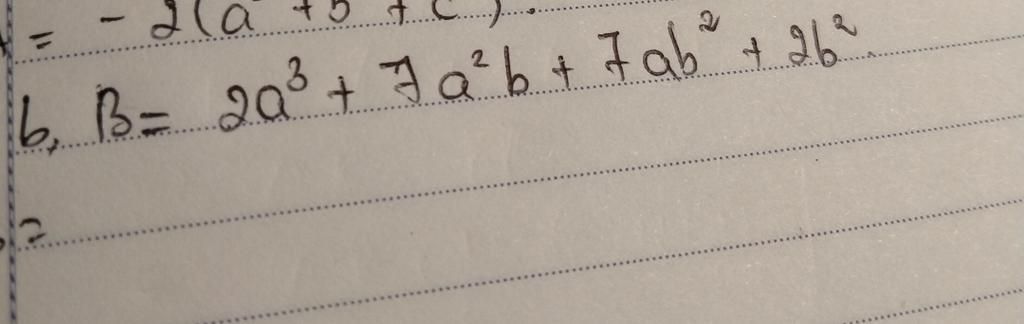 = - 2(a + b + c).
b, B = 2a³ + 7a²b + 7ab² + 2b².
=